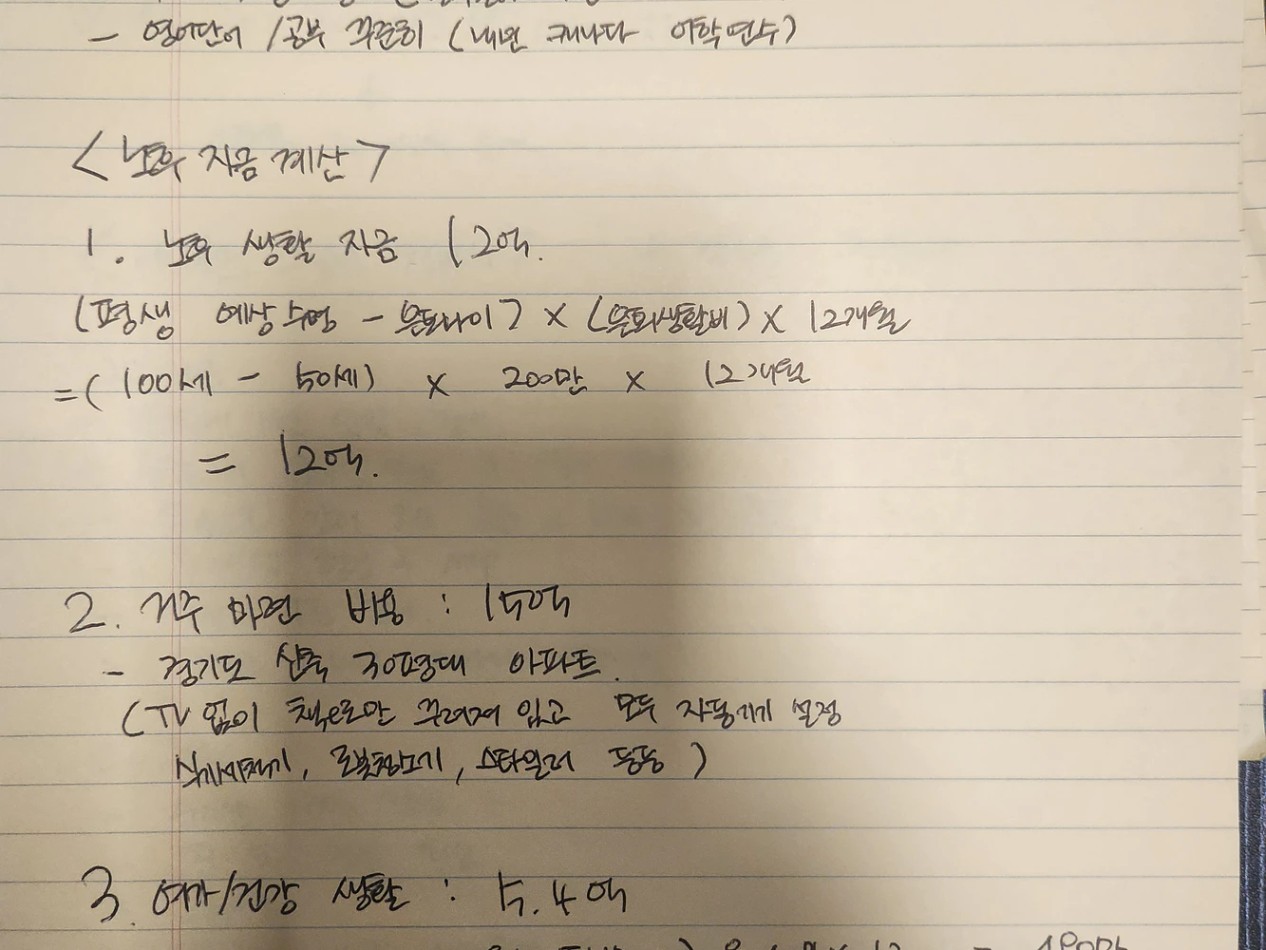 - 영어단어 / 공부 꾸준히 (내년 캐나다 어학연수)
<노후 자금 계산>
1. 노후 생활 자금 12억.
(평생 예상수명 - 은퇴나이) × (은퇴생활비) × 12개월
= (100세 - 50세) × 200만 × 12개월
= 12억.
2. 거주 마련 비용 : 15억
- 경기도 신축 30평대 아파트.
(TV 없이 책으로만 꾸려져 있고 모두 자동기기 설정
식기세척기, 로봇청소기, 스타일러 등등)
3. 여가/건강 생활 : 5.4억